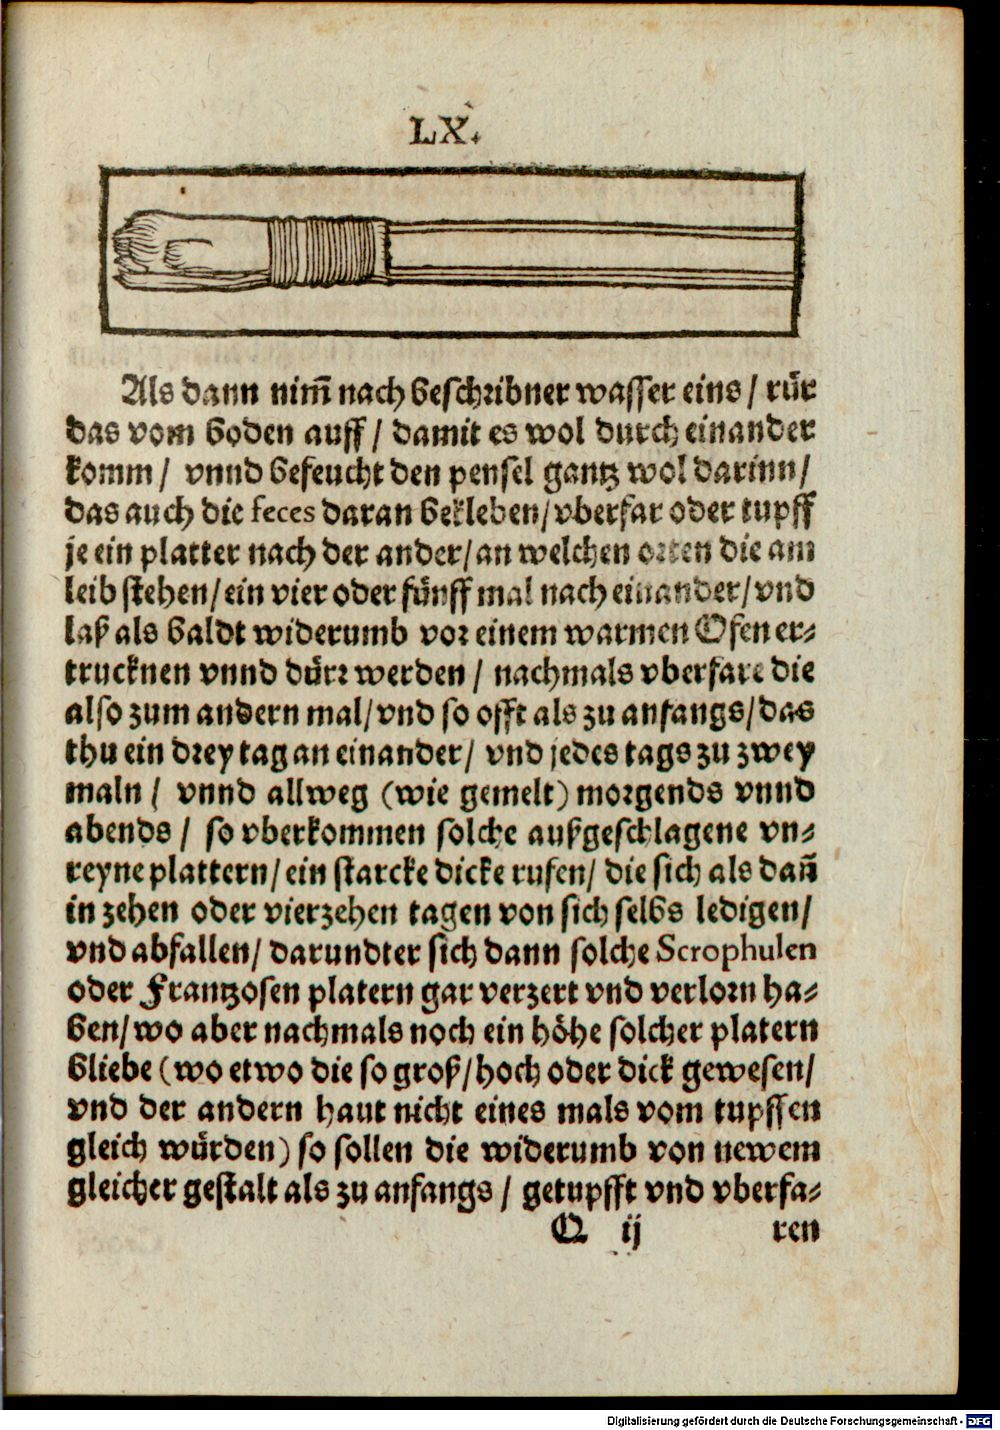 LX.
Als dann nim̃ nach beschribner wasser eins / rür
das vom boden auff / damit es wol durch einander
komm / vnnd befeucht den pensel gantz wol darinn /
das auch die feces daran bekleben / vberfar oder tupff
je ein platter nach der ander / an welchen orten die am
leib stehen / ein vier oder fünff mal nach einander / vnd
laß als baldt widerumb vor einem warmen Ofen er-
trucknen vnnd dürr werden / nachmals vberfare die
also zum andern mal / vnd so offt als zu anfangs / das
thu ein drey tag an einander / vnd jedes tags zu zwey
maln / vnnd allweg (wie gemelt) morgends vnnd
abends / so vberkommen solche außgeschlagene vn-
reyne plattern / ein starcke dicke rufen / die sich als dañ
in zehen oder vierzehen tagen von sich selbs ledigen /
vnd abfallen / darundter sich dann solche Scrophulen
oder Frantzosen platern gar verzert vnd verlorn ha-
ben / wo aber nachmals noch ein höhe solcher platern
bliebe (wo etwo die so groß / hoch oder dick gewesen /
vnd der andern haut nicht eines mals vom tupffen
gleich würden) so sollen die widerumb von newem
gleicher gestalt als zu anfangs / getupfft vnd vberfa-
Q ij ren
Digitalisierung gefördert durch die Deutsche Forschungsgemeinschaft - DFG